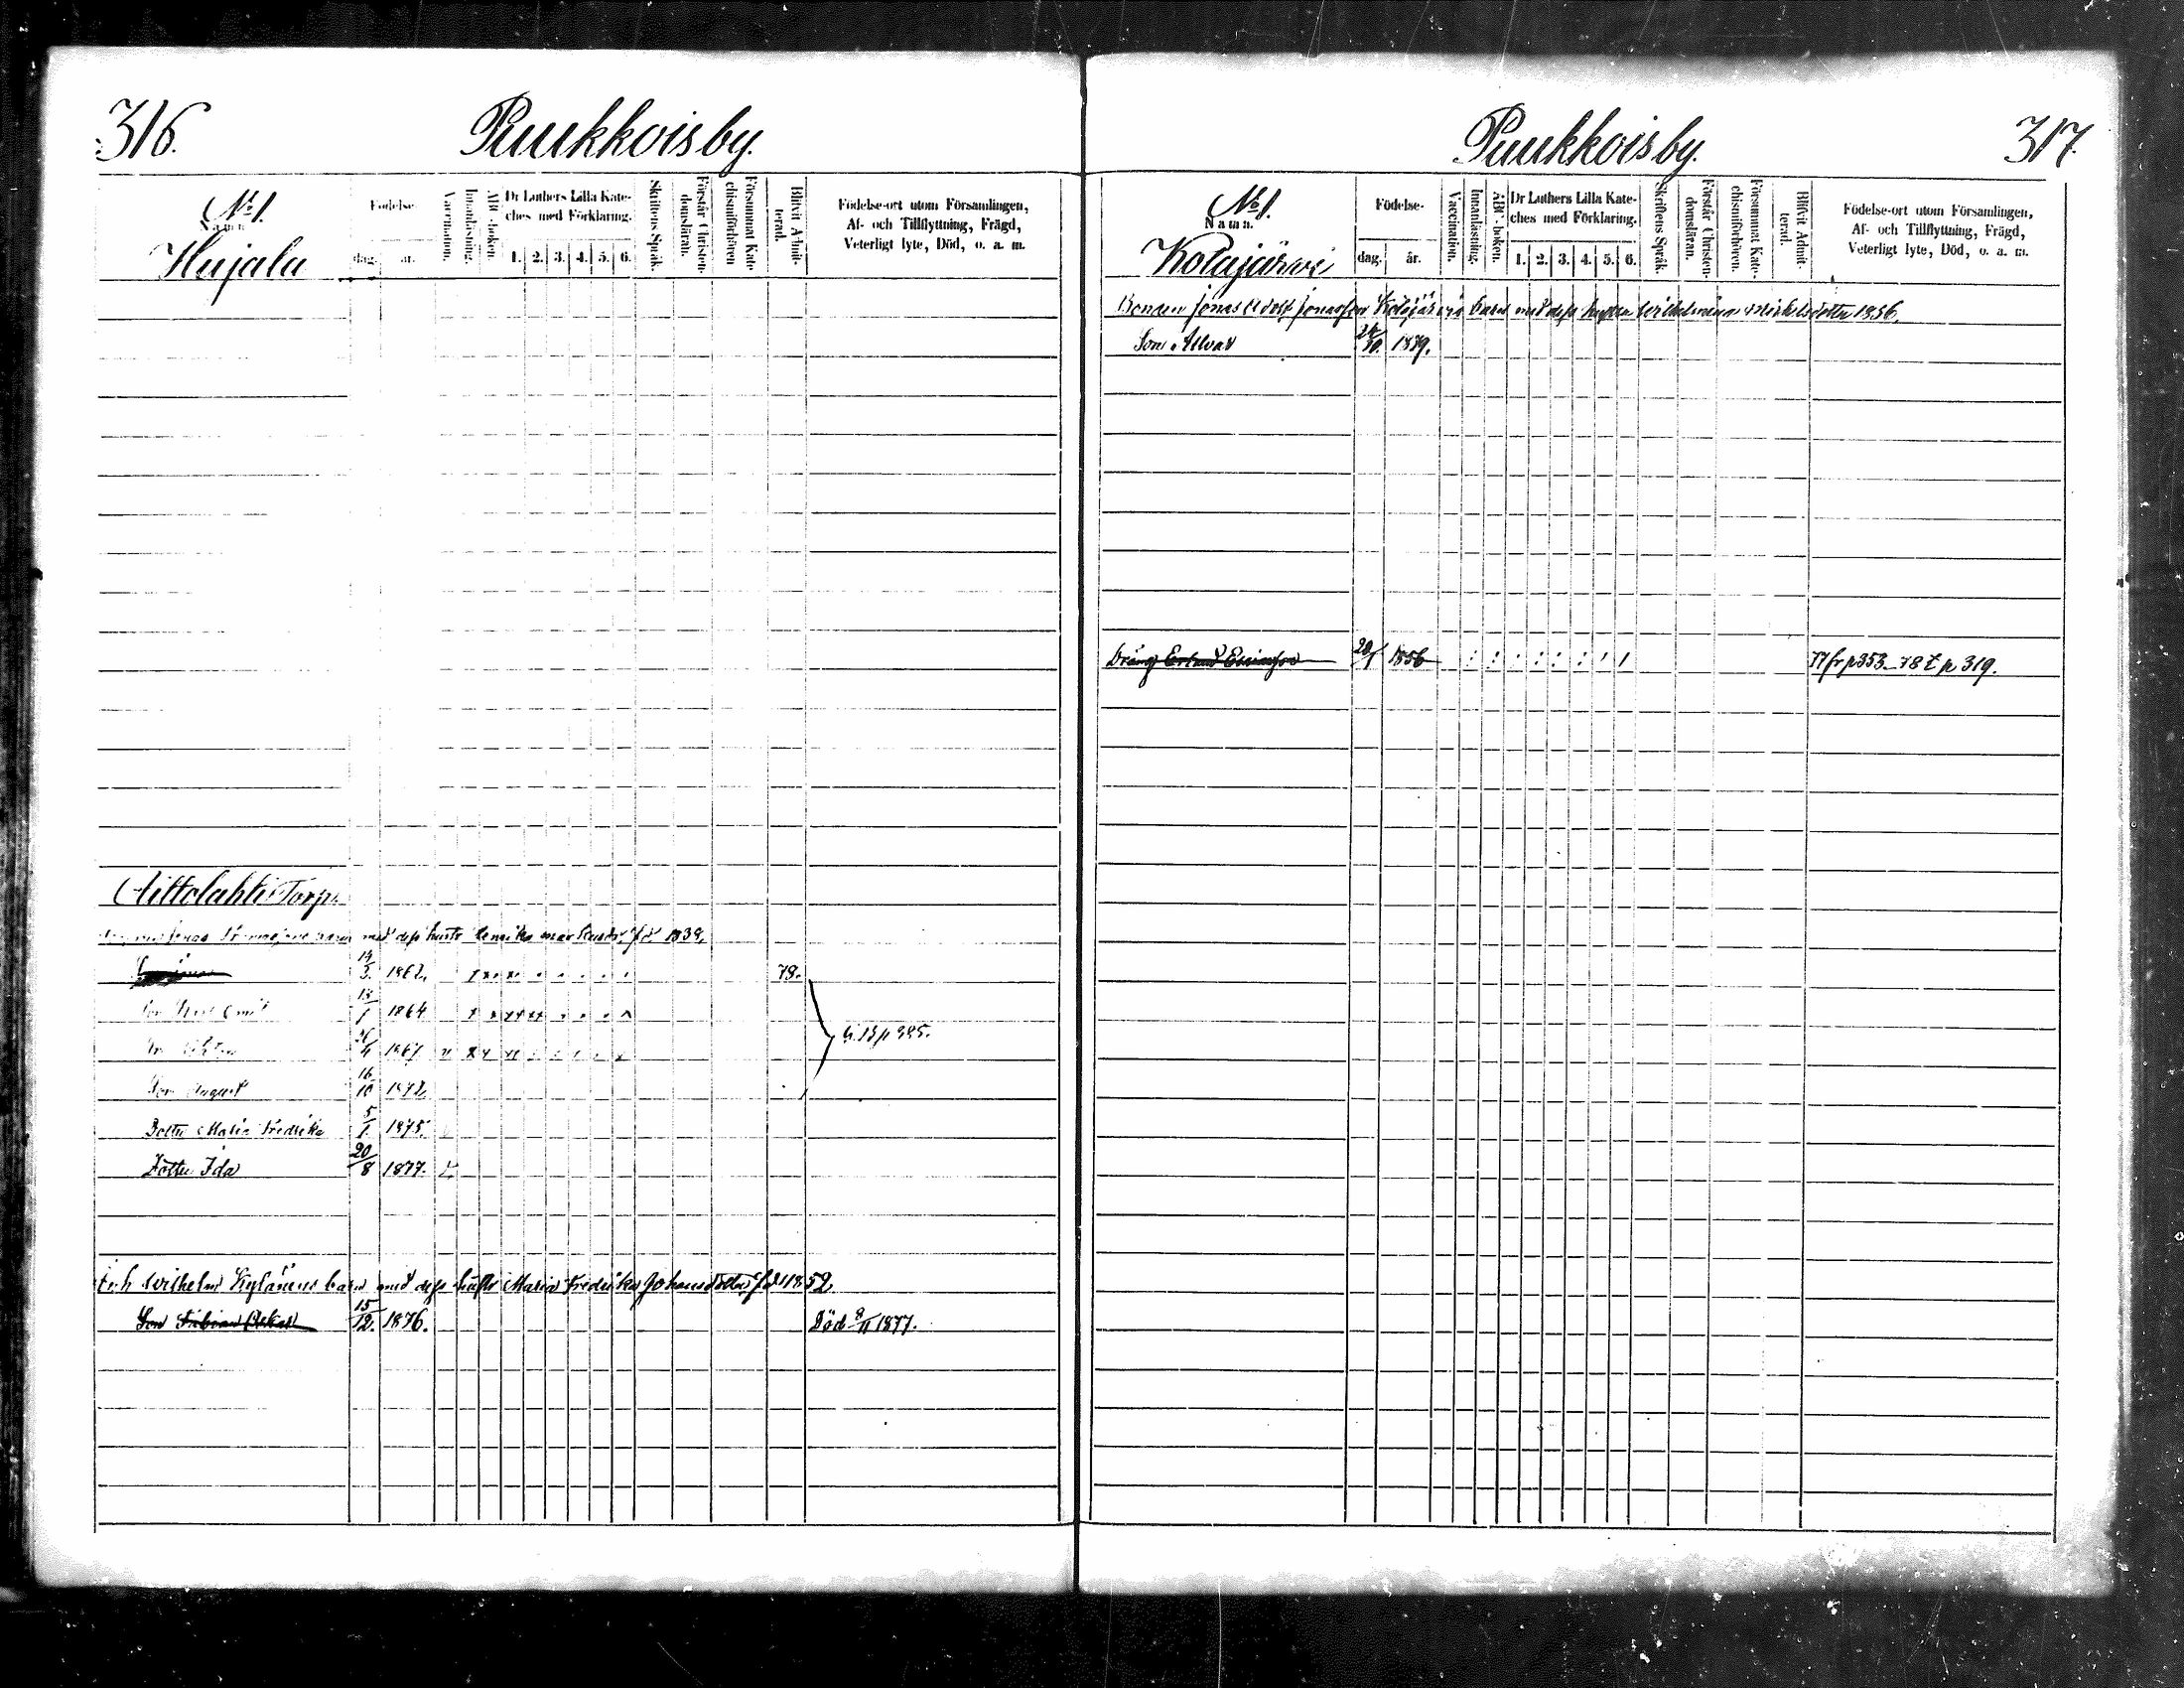 316.
Puukkoisby.
No 1.
Namn.
Hujala
Födelse-
dag. år.
Vaccination.
Innanläsning.
ABC-boken.
Dr Luthers Lilla Kate-
ches med Förklaring.
1. 2. 3. 4. 5. 6.
Skriftens Språk.
Förstår Christen-
domsläran.
Försummat Kate-
chismiförhören.
Blifvit Admit-
terad.
Födelse-ort utom Församlingen,
Af- och Tillflyttning, Frägd,
Veterligt lyte, Död, o. a. m.
Aittolahti Torp.
Jonas barn med dess hustr Henrika född 1838.
14/3. 1862. 78.
Emil 13/1 1864
26/4 1867
Son August 16/10 1872
Dotter Maria Fredrika 5/1. 1875.
Dotter Ida 20/8 1877.
Wilhelm barn med dess hustr Maria Fredrika Johansdotter född 1852
Son Fabian Oskar 15/12. 1876. Död 9/11 1877.
317.
Puukkoisby.
No 1.
Namn.
Kolajärvi
Födelse-
dag. år.
Vaccination.
Innanläsning.
ABC-boken.
Dr Luthers Lilla Kate-
ches med Förklaring.
1. 2. 3. 4. 5. 6.
Skriftens Språk.
Förstår Christen-
domsläran.
Försummat Kate-
chismiförhören.
Blifvit Admit-
terad.
Födelse-ort utom Församlingen,
Af- och Tillflyttning, Frägd,
Veterligt lyte, Död, o. a. m.
Bonden Jonas Adolf Jonasson Kolajärvis barn med dess hustru Wilhelmina Mickelsdotter 1856.
Son Alvar 24/10. 1879.
Dräng Erland 20/1 1856 77 fr p 353 78 t p 319.